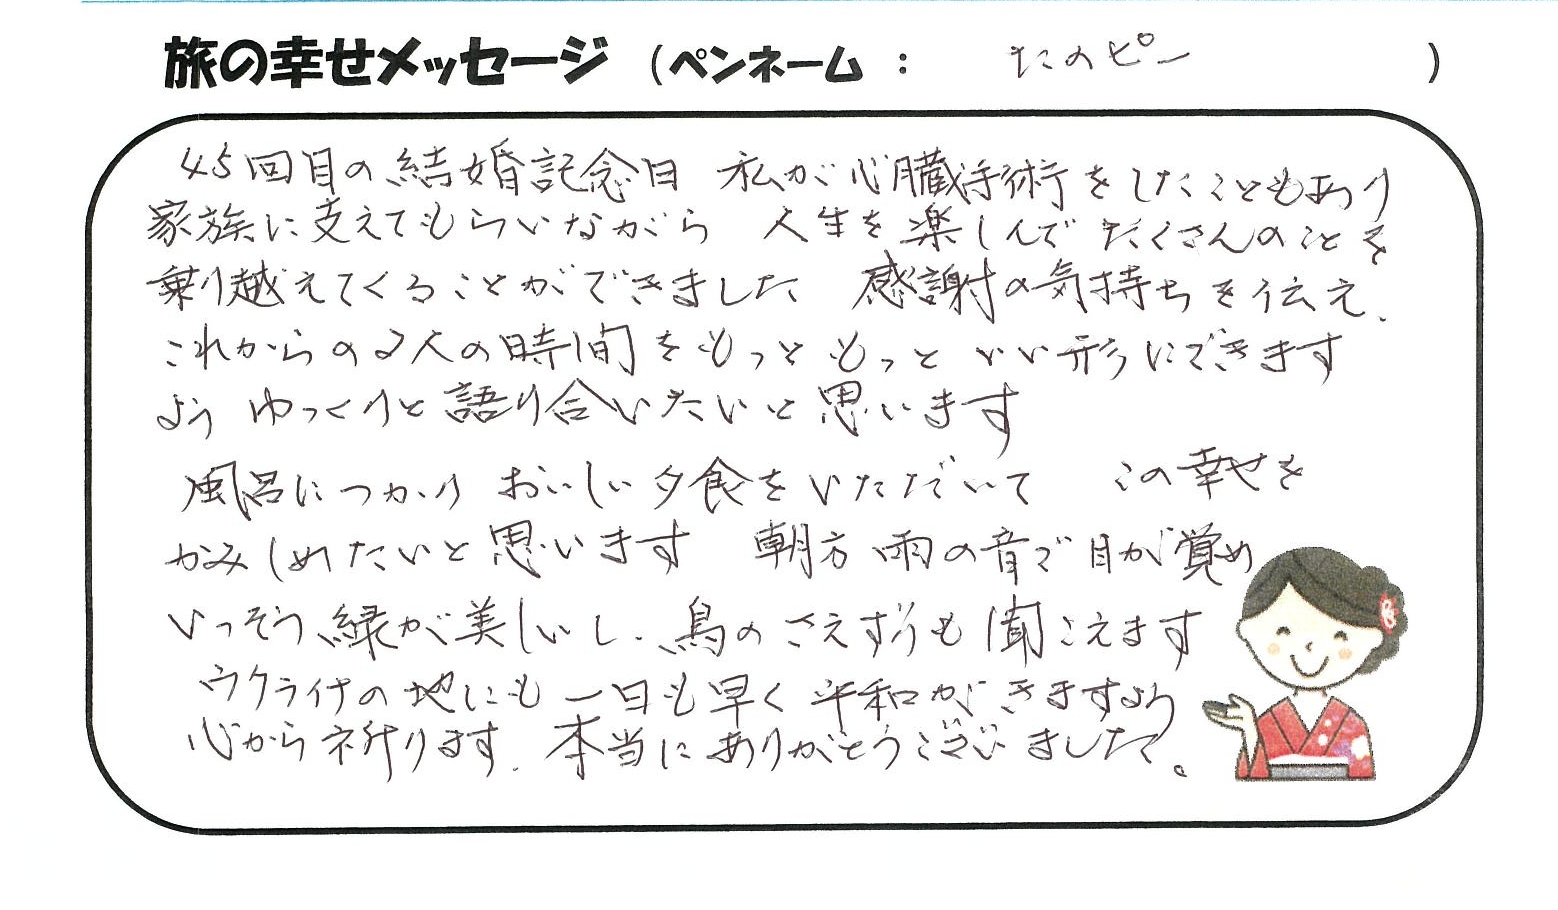 旅の幸せメッセージ (ペンネーム: たのピー )
45回目の結婚記念日 私が心臓手術をしたこともあり
家族に支えてもらいながら 人生を楽しんで たくさんのことを
乗り越えてくることができました 感謝の気持ちを伝え、
これからの2人の時間をもっともっと いい形にできます
よう ゆっくりと語り合いたいと思います
風呂につかり おいしい夕食をいただいて この幸せを
かみしめたいと思います 朝方 雨の音で目が覚め
いっそう緑が美しいし、鳥のさえずりも聞こえます
ウクライナの地にも 一日も早く 平和がきますよう
心から祈ります。本当にありがとうございました。